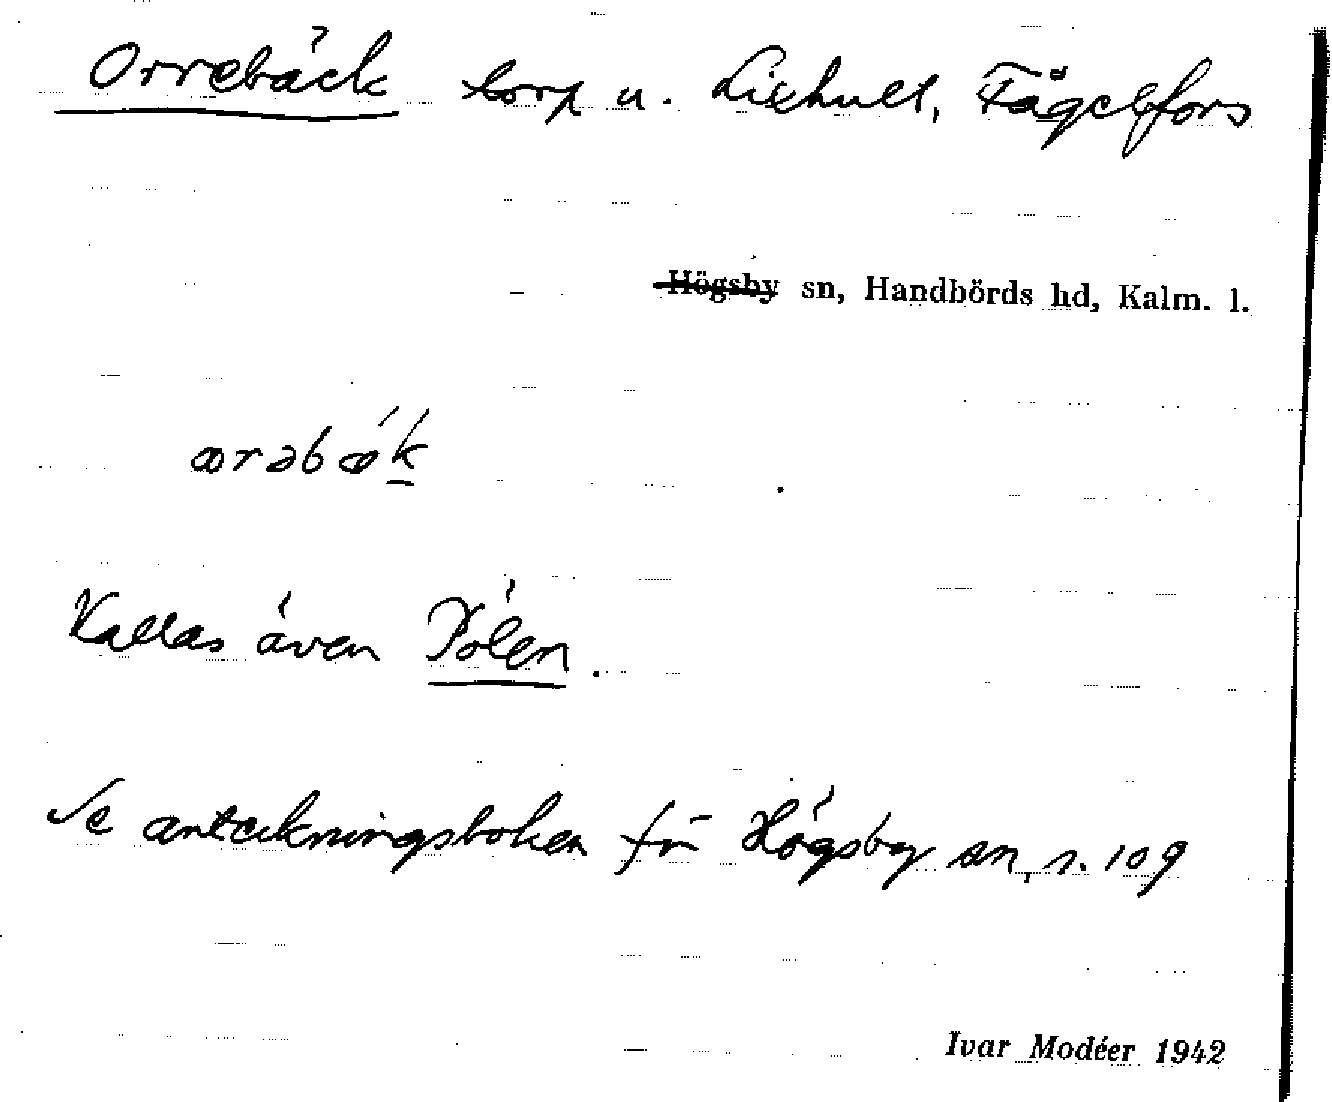 Orrebäck torp u. Lixhult, Fågelfors
Högsby sn, Handbörds hd, Kalm. l.
ærəbæ̀k
Kallas även Pölen.
Se anteckningsboken för Högsby sn, s. 109
Ivar Modéer 1942